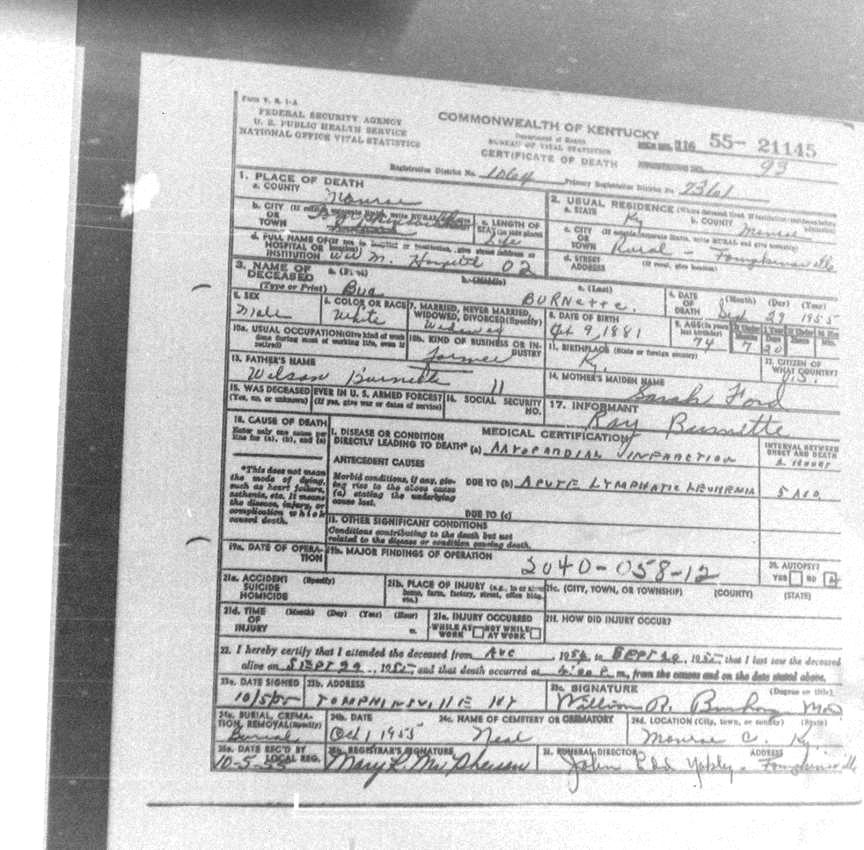 Form V. S. 1-A
FEDERAL SECURITY AGENCY
U. S. PUBLIC HEALTH SERVICE
NATIONAL OFFICE VITAL STATISTICS
COMMONWEALTH OF KENTUCKY
Department of Health
BUREAU OF VITAL STATISTICS
CERTIFICATE OF DEATH
116 55-21145
93
Registration District No. 1064 Primary Registration District No. 2361
1. PLACE OF DEATH
a. COUNTY Monroe
b. CITY OR TOWN
c. LENGTH OF STAY Life
d. FULL NAME OF HOSPITAL OR INSTITUTION Wm M. Hospital 02
2. USUAL RESIDENCE
a. STATE Ky
b. COUNTY Monroe
c. CITY OR TOWN Rural - Tompkinsville
d. STREET ADDRESS (If rural, give location)
3. NAME OF DECEASED (Type or Print)
a. (First) b. (Middle) c. (Last) BURNETTE.
4. DATE OF DEATH (Month) (Day) (Year) Sept 29 1955
5. SEX Male
6. COLOR OR RACE White
7. MARRIED, NEVER MARRIED, WIDOWED, DIVORCED (Specify) Widowed
8. DATE OF BIRTH 9, 1881
9. AGE (In years last birthday) 74 7 20
10a. USUAL OCCUPATION (Give kind of work done during most of working life, even if retired)
10b. KIND OF BUSINESS OR INDUSTRY Farmer
11. BIRTHPLACE (State or foreign country) Ky.
12. CITIZEN OF WHAT COUNTRY? U.S.
13. FATHER'S NAME Wilson Burnette
14. MOTHER'S MAIDEN NAME Sarah Ford
15. WAS DECEASED EVER IN U. S. ARMED FORCES? (Yes, no, or unknown) (If yes, give war or dates of service)
16. SOCIAL SECURITY NO.
17. INFORMANT Ray Burnette
18. CAUSE OF DEATH
Enter only one cause per line for (a), (b), and (c)
MEDICAL CERTIFICATION
INTERVAL BETWEEN ONSET AND DEATH
I. DISEASE OR CONDITION DIRECTLY LEADING TO DEATH* (a) MYOCARDIAL INFARCTION
*This does not mean the mode of dying, such as heart failure, asthenia, etc. It means the disease, injury, or complication which caused death.
ANTECEDENT CAUSES
Morbid conditions, if any, giving rise to the above cause (a) stating the underlying cause last.
DUE TO (b) ACUTE LYMPHATIC LEUKEMIA
DUE TO (c)
II. OTHER SIGNIFICANT CONDITIONS
Conditions contributing to the death but not related to the disease or condition causing death.
19a. DATE OF OPERATION
19b. MAJOR FINDINGS OF OPERATION
2040-058-12
20. AUTOPSY? YES NO
21a. ACCIDENT SUICIDE HOMICIDE (Specify)
21b. PLACE OF INJURY (e.g., in or about home, farm, factory, street, office bldg. etc.)
21c. (CITY, TOWN, OR TOWNSHIP) (COUNTY) (STATE)
21d. TIME OF INJURY (Month) (Day) (Year) (Hour) m.
21e. INJURY OCCURRED WHILE AT WORK NOT WHILE AT WORK
21f. HOW DID INJURY OCCUR?
22. I hereby certify that I attended the deceased from AUG, 195 to SEPT 29, 195 that I last saw the deceased
alive on SEPT 29, 195, and that death occurred at m., from the causes and on the date stated above.
23a. DATE SIGNED 10/5/55
23b. ADDRESS TOMPKINSVILLE KY
23c. SIGNATURE (Degree or title) William R. MD
24a. BURIAL, CREMATION, REMOVAL (Specify) Burial
24b. DATE Oct 1 1955
24c. NAME OF CEMETERY OR CREMATORY Neal
24d. LOCATION (City, town, or county) (State) Monroe C. Ky.
25a. DATE REC'D BY LOCAL REG. 10-5-55
25b. REGISTRAR'S SIGNATURE Mary L. McPherson
26. FUNERAL DIRECTOR ADDRESS John Tompkinsville